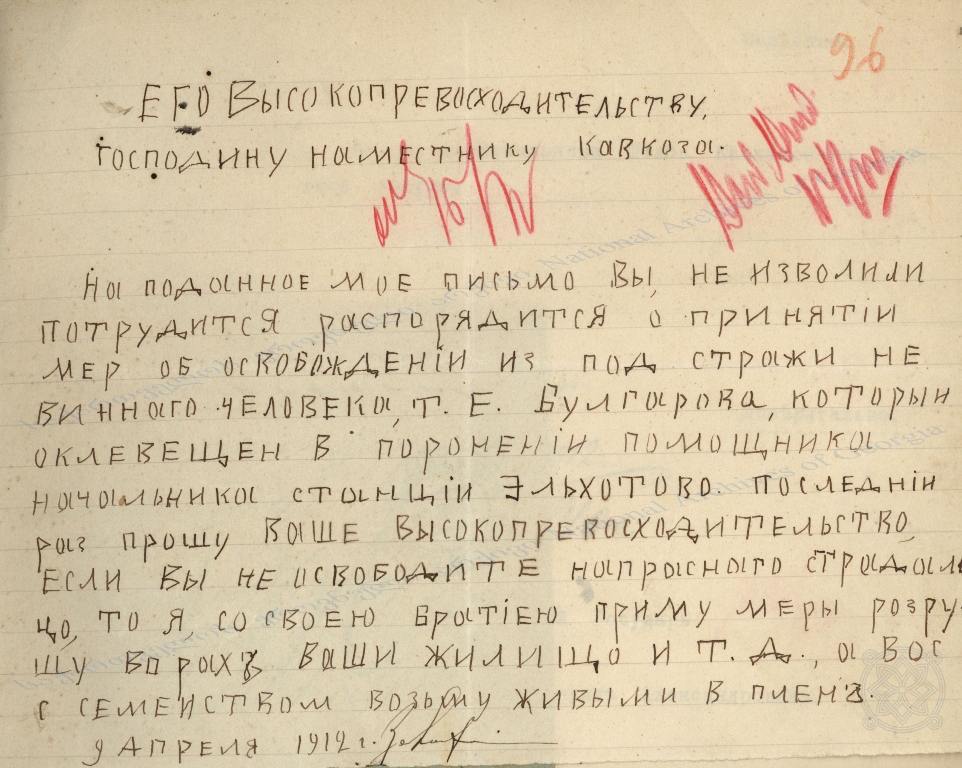 96
ЕГО ВЫСОКОПРЕВОСХОДИТЕЛЬСТВУ,
Господину наместнику Кавкоза.
На поданное мое письмо Вы, не изволили
потрудится распорядится о принятiи
мер об освобожденiи из под стражи не
винного человека, Т. Е. Булгарова, которыи
оклевещен в пороменiи помощника
начальника станцiи Эльхотово. Последнiи
раз прошу Ваше Высокопревосходительство,
если Вы не освободите напрасного страдаль
цо, то я, со своею братiею приму меры розру-
шу впрахъ Ваши жилищо и Т. Д., а Вос
с семеиством возьму живыми в пленъ.
9 Апреля 1912 г.